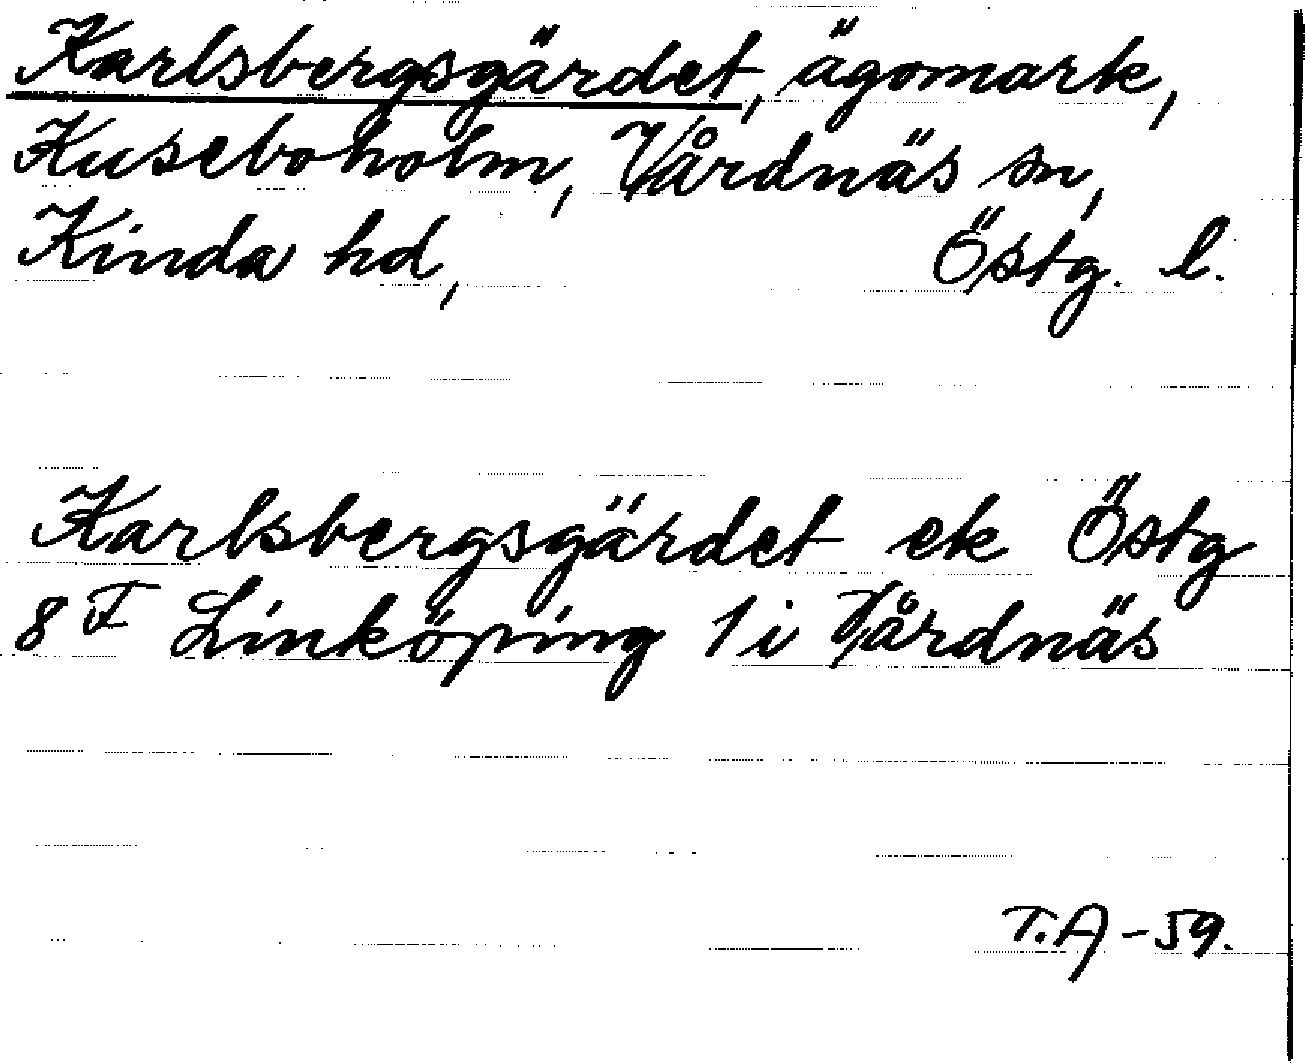 Karlsbergsgärdet, ägomark,
Kuseboholm, Vårdnäs sn,
Kinda hd, Östg. l.
Karlsbergsgärdet ek Östg
8 F Linköping 1 i Vårdnäs
T.A -59.